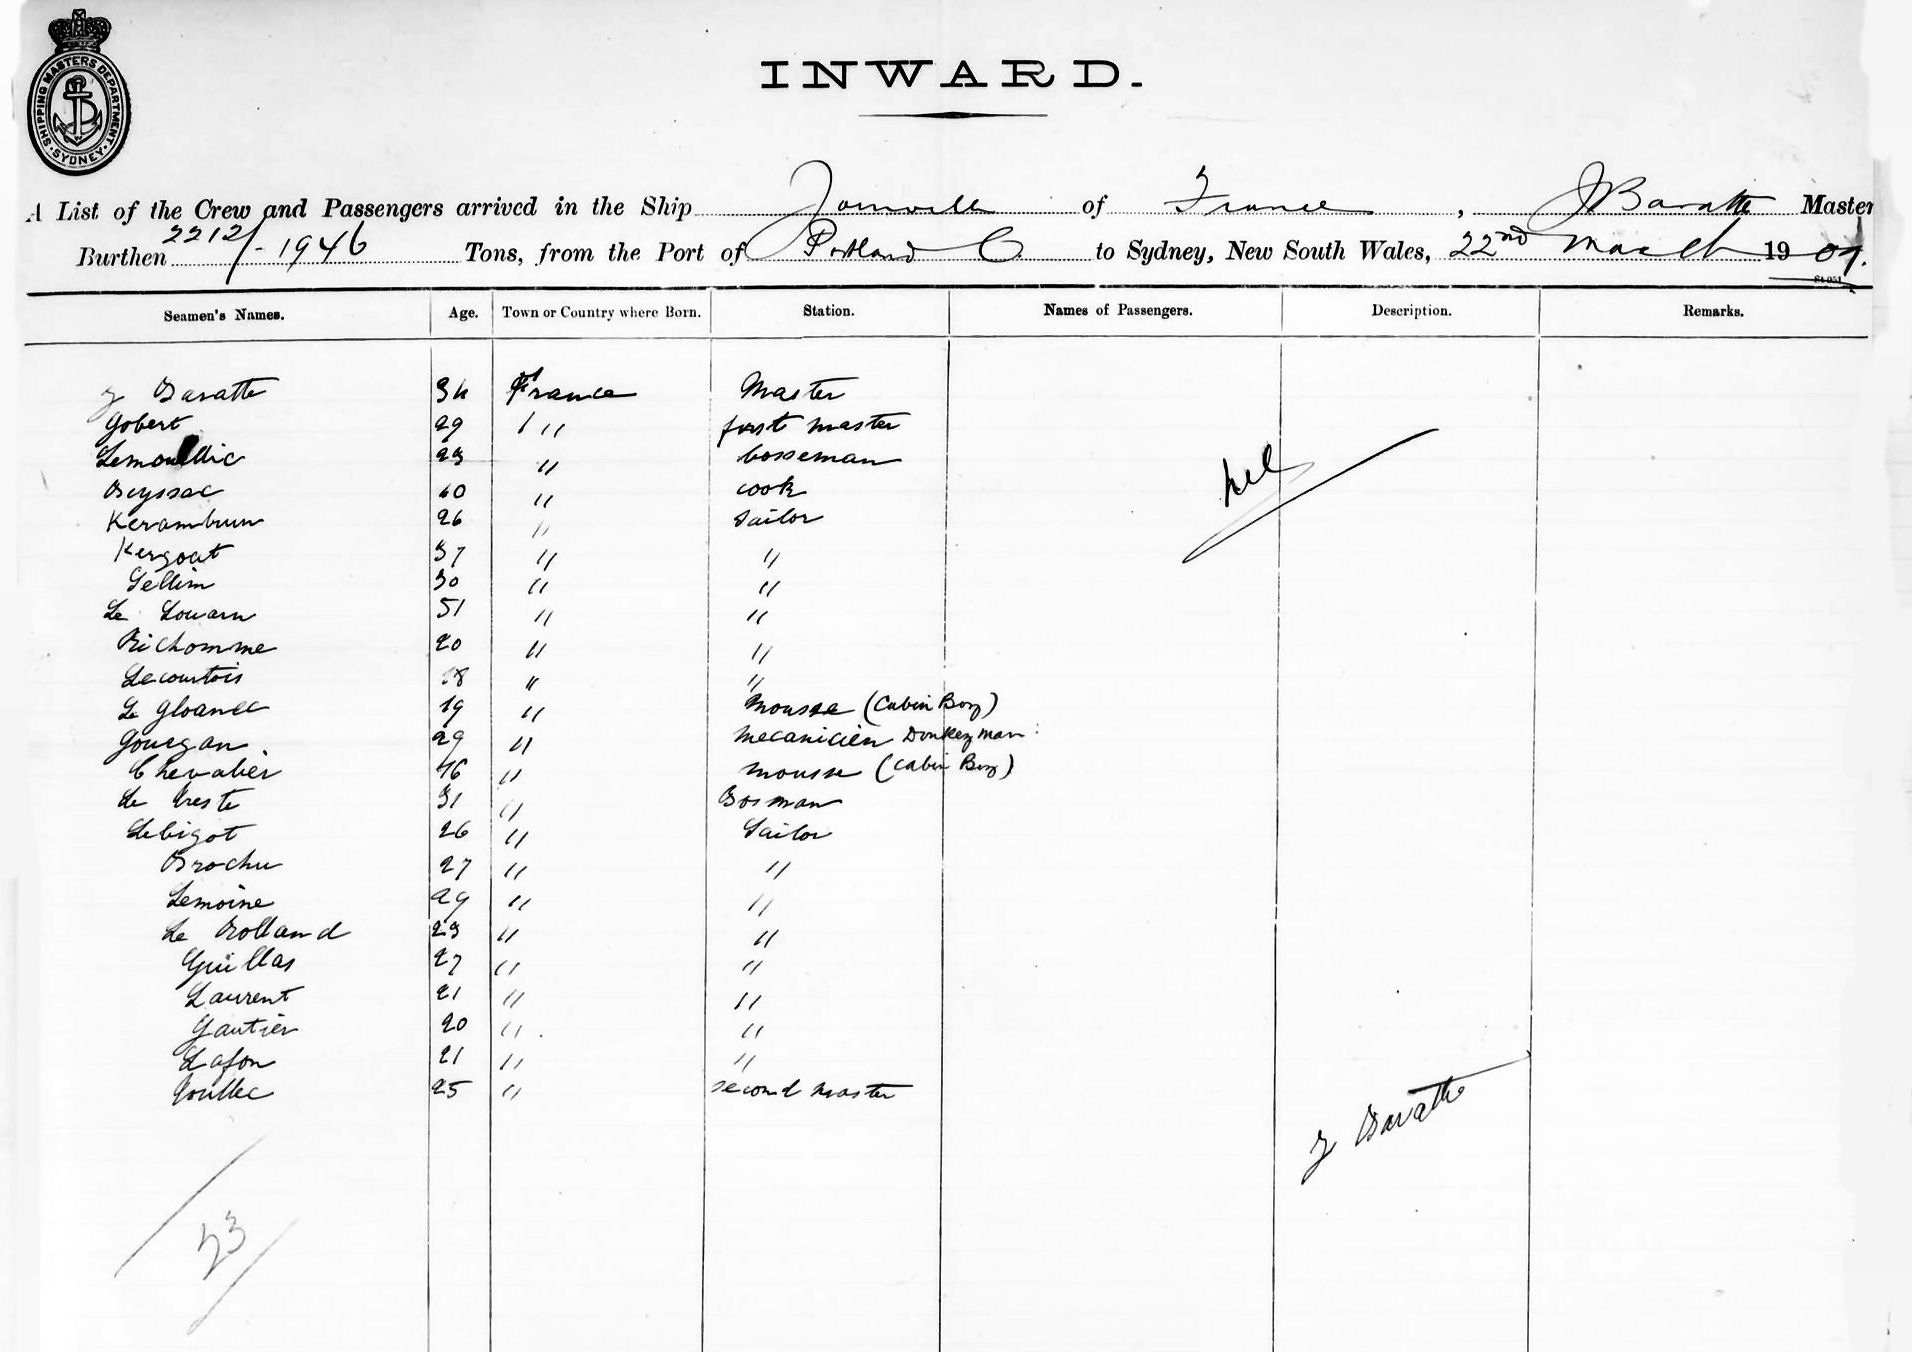 SHIPPING MASTERS DEPARTMENT. SYDNEY.
INWARD.
A List of the Crew and Passengers arrived in the Ship Joinville of France, J Baratte Master
Burthen 2212/-1946 Tons, from the Port of Portland O. to Sydney, New South Wales, 22nd March 1907.
Seamen's Names. Age. Town or Country where Born. Station. Names of Passengers. Description. Remarks.
J Baratte 34 France Master
Gobert 29 " first master
23 " bosseman
Beyssac 40 " cook
Kerambrun 26 " Sailor
Kergoat 37 " "
30 " "
Le Louarn 51 " "
Richomme 20 " "
Lecourtois 18 " "
Le Gloanec 19 " Mousse (Cabin Boy)
29 " Mecanicien Donkeyman
Chevalier 46 " mousse (Cabin Boy)
Le 31 " Bosman
Lebigot 26 " Sailor
Brochu 27 " "
Lemoine 29 " "
Le Rolland 23 " "
Guillas 27 " "
Laurent 21 " "
Gautier 20 " "
Lafon 21 " "
25 " second master
J Baratte
23